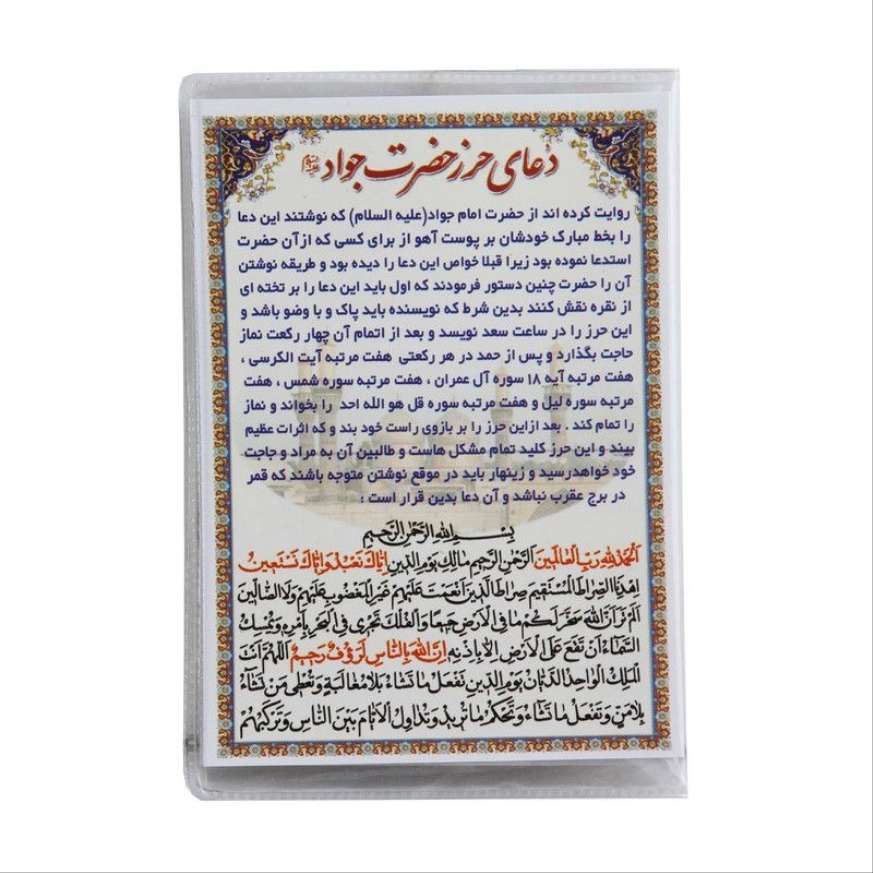 دعای حرز حضرت جواد
روایت کرده اند از حضرت امام جواد(علیه السلام) که نوشتند این دعا
را بخط مبارک خودشان بر پوست آهو از برای کسی که ازآن حضرت
استدعا نموده بود زیرا قبلا خواص این دعا را دیده بود و طریقه نوشتن
آن را حضرت چنین دستور فرمودند که اول باید این دعا را بر تخته ای
از نقره نقش کنند بدین شرط که نویسنده باید پاک و با وضو باشد و
این حرز را در ساعت سعد نویسد و بعد از اتمام آن چهار رکعت نماز
حاجت بگذارد و پس از حمد در هر رکعتی هفت مرتبه آیت الکرسی ،
هفت مرتبه آیه ۱۸ سوره آل عمران ، هفت مرتبه سوره شمس ، هفت
مرتبه سوره لیل و هفت مرتبه سوره قل هو الله احد را بخواند و نماز
را تمام کند . بعد ازاین حرز را بر بازوی راست خود بند و که اثرات عظیم
بیند و این حرز کلید تمام مشکل هاست و طالبین آن به مراد و حاجت
خود خواهدرسید و زینهار باید در موقع نوشتن متوجه باشند که قمر
در برج عقرب نباشد و آن دعا بدین قرار است :
بِسْمِ اللهِ الرَّحْمٰنِ الرَّحِیمِ
اَلْحَمْدُ لِلّٰهِ رَبِّ الْعالَمینَ الرَّحْمٰنِ الرَّحیمِ مالِكِ یَوْمِ الدّینِ اِیّاكَ نَعْبُدُ وَ اِیّاكَ نَسْتَعینُ
اِهْدِنَا الصِّراطَ الْمُسْتَقیمَ صِراطَ الَّذینَ اَنْعَمْتَ عَلَیْهِمْ غَیْرِ الْمَغْضُوبِ عَلَیْهِمْ وَلَا الضّالّینَ
اَلَمْ تَرَ اَنَّ اللهَ سَخَّرَ لَكُمْ ما فِی الْاَرْضِ جَمیعًا وَالْفُلْكَ تَجْری فِی الْبَحْرِ بِاَمْرِهِ وَ یُمْسِكُ
السَّماءَ اَنْ تَقَعَ عَلَی الْاَرْضِ اِلّا بِاِذْنِهِ اِنَّ اللهَ بِالنّاسِ لَرَؤُفٌ رَحیمٌ اَللّٰهُمَّ اَنْتَ
الْمَلِكُ الْواحِدُ الدَّیّانُ یَوْمِ الدّینِ تَفْعَلُ ما تَشاءُ بِلا مُغالَبَةٍ وَ تُعْطی مَنْ تَشاءُ
بِلا مَنٍّ وَ تَفْعَلُ ما تَشاءُ وَ تَحْكُمُ ما تُریدُ وَ تُداوِلُ الْاَیّامَ بَیْنَ النّاسِ وَ تُرَكِّبُهُمْ